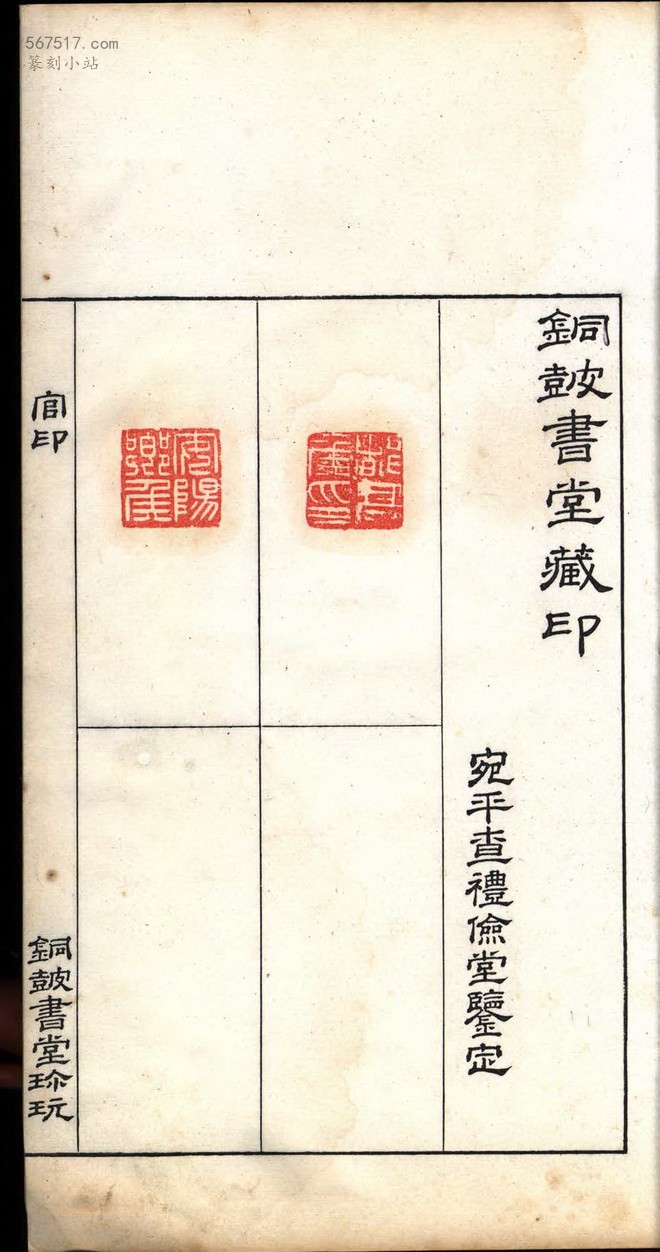 567517.com
篆刻小站
銅皷書堂藏印
宛平查禮儉堂鑒定
安陽鄉侯
官印
銅皷書堂珎玩